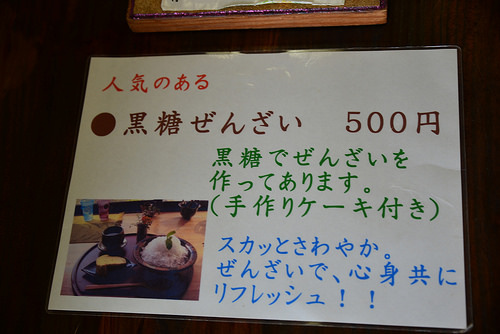 人気のある
●黒糖ぜんざい 500円
黒糖でぜんざいを
作ってあります。
(手作りケーキ付き)
スカッとさわやか。
ぜんざいで、心身共に
リフレッシュ!!